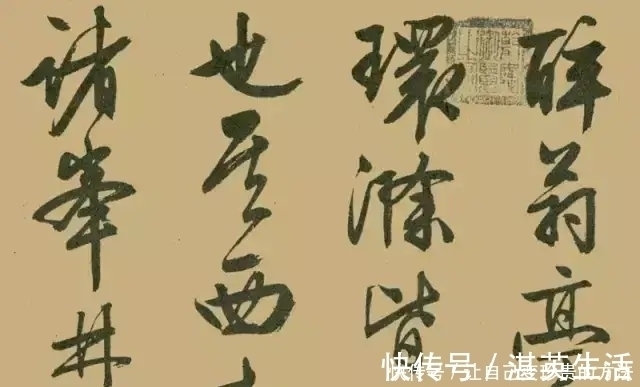 醉翁亭
環滁皆
也其西
諸峯林
快传号／湛英生活